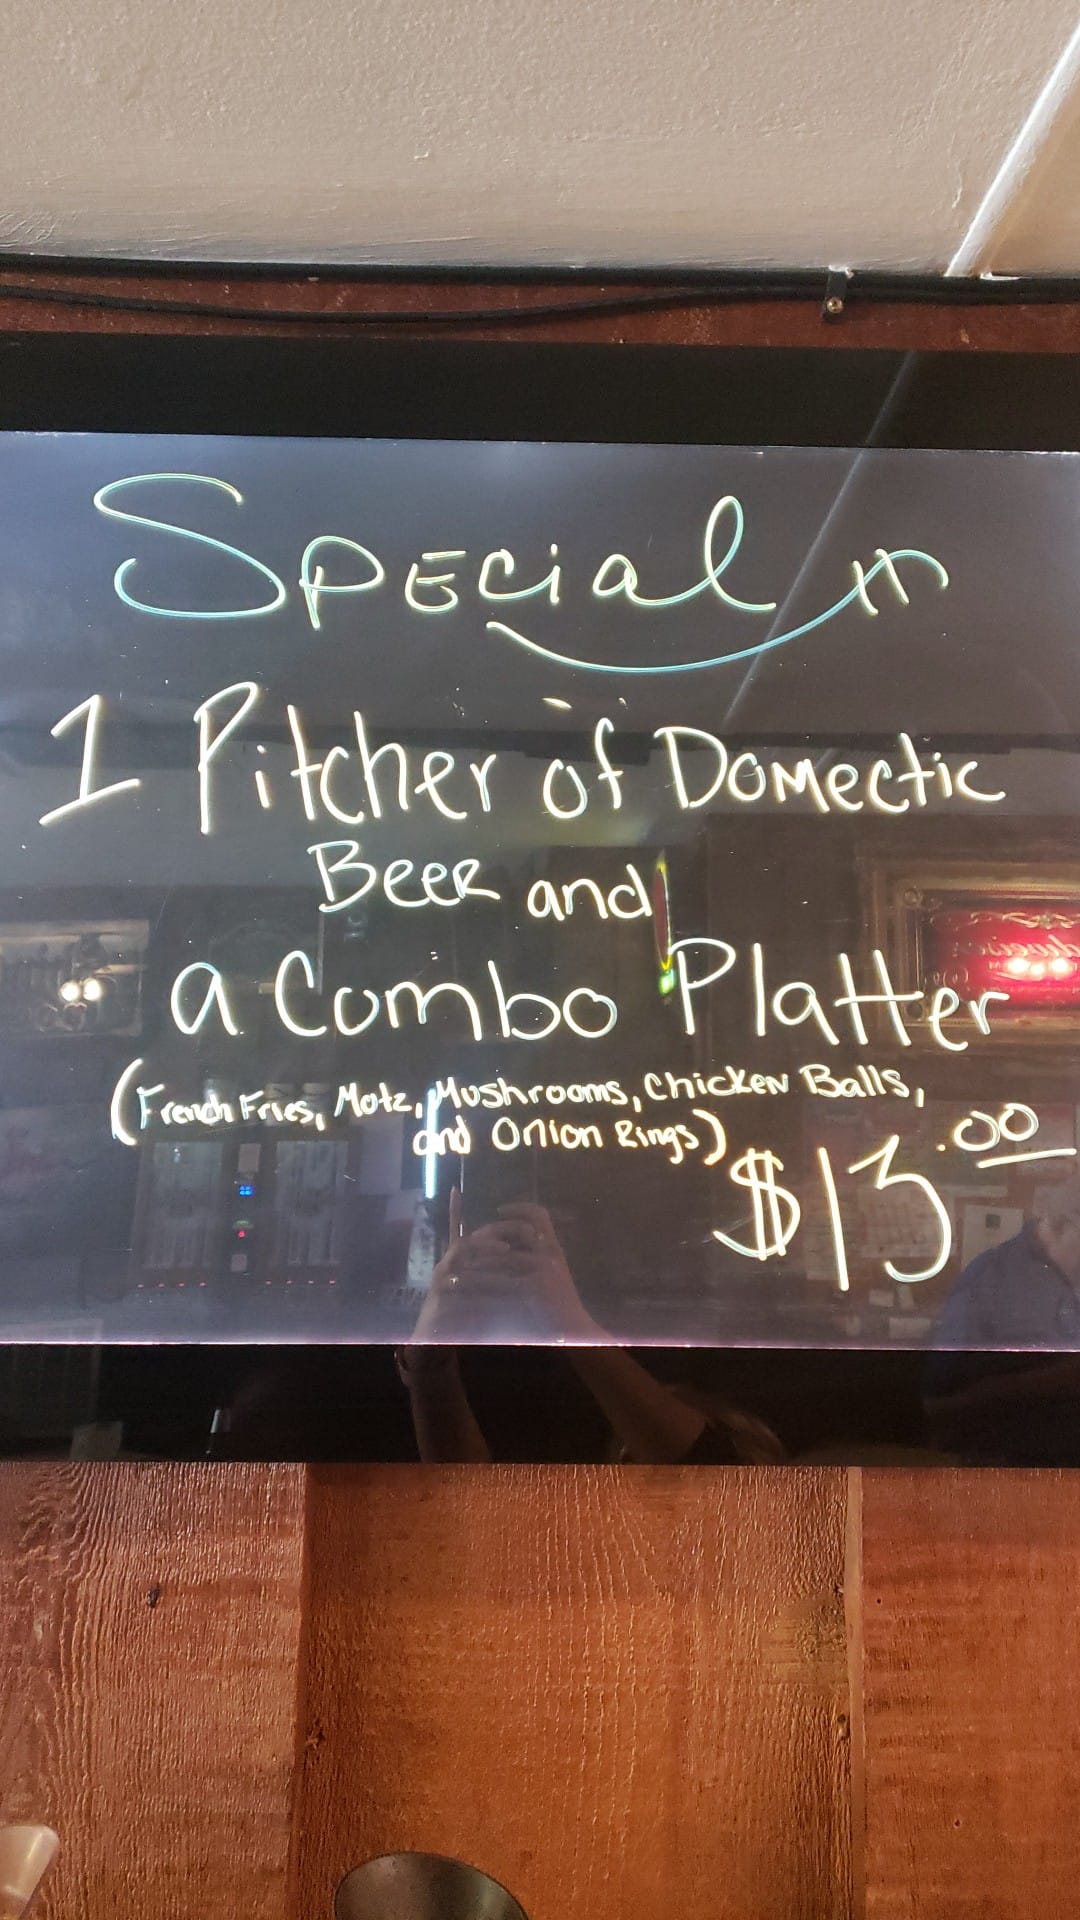 Special
1 Pitcher of Domectic
Beer and
a Combo Platter
(French Fries, Motz, Mushrooms, Chicken Balls,
and Onion Rings)
$13.00